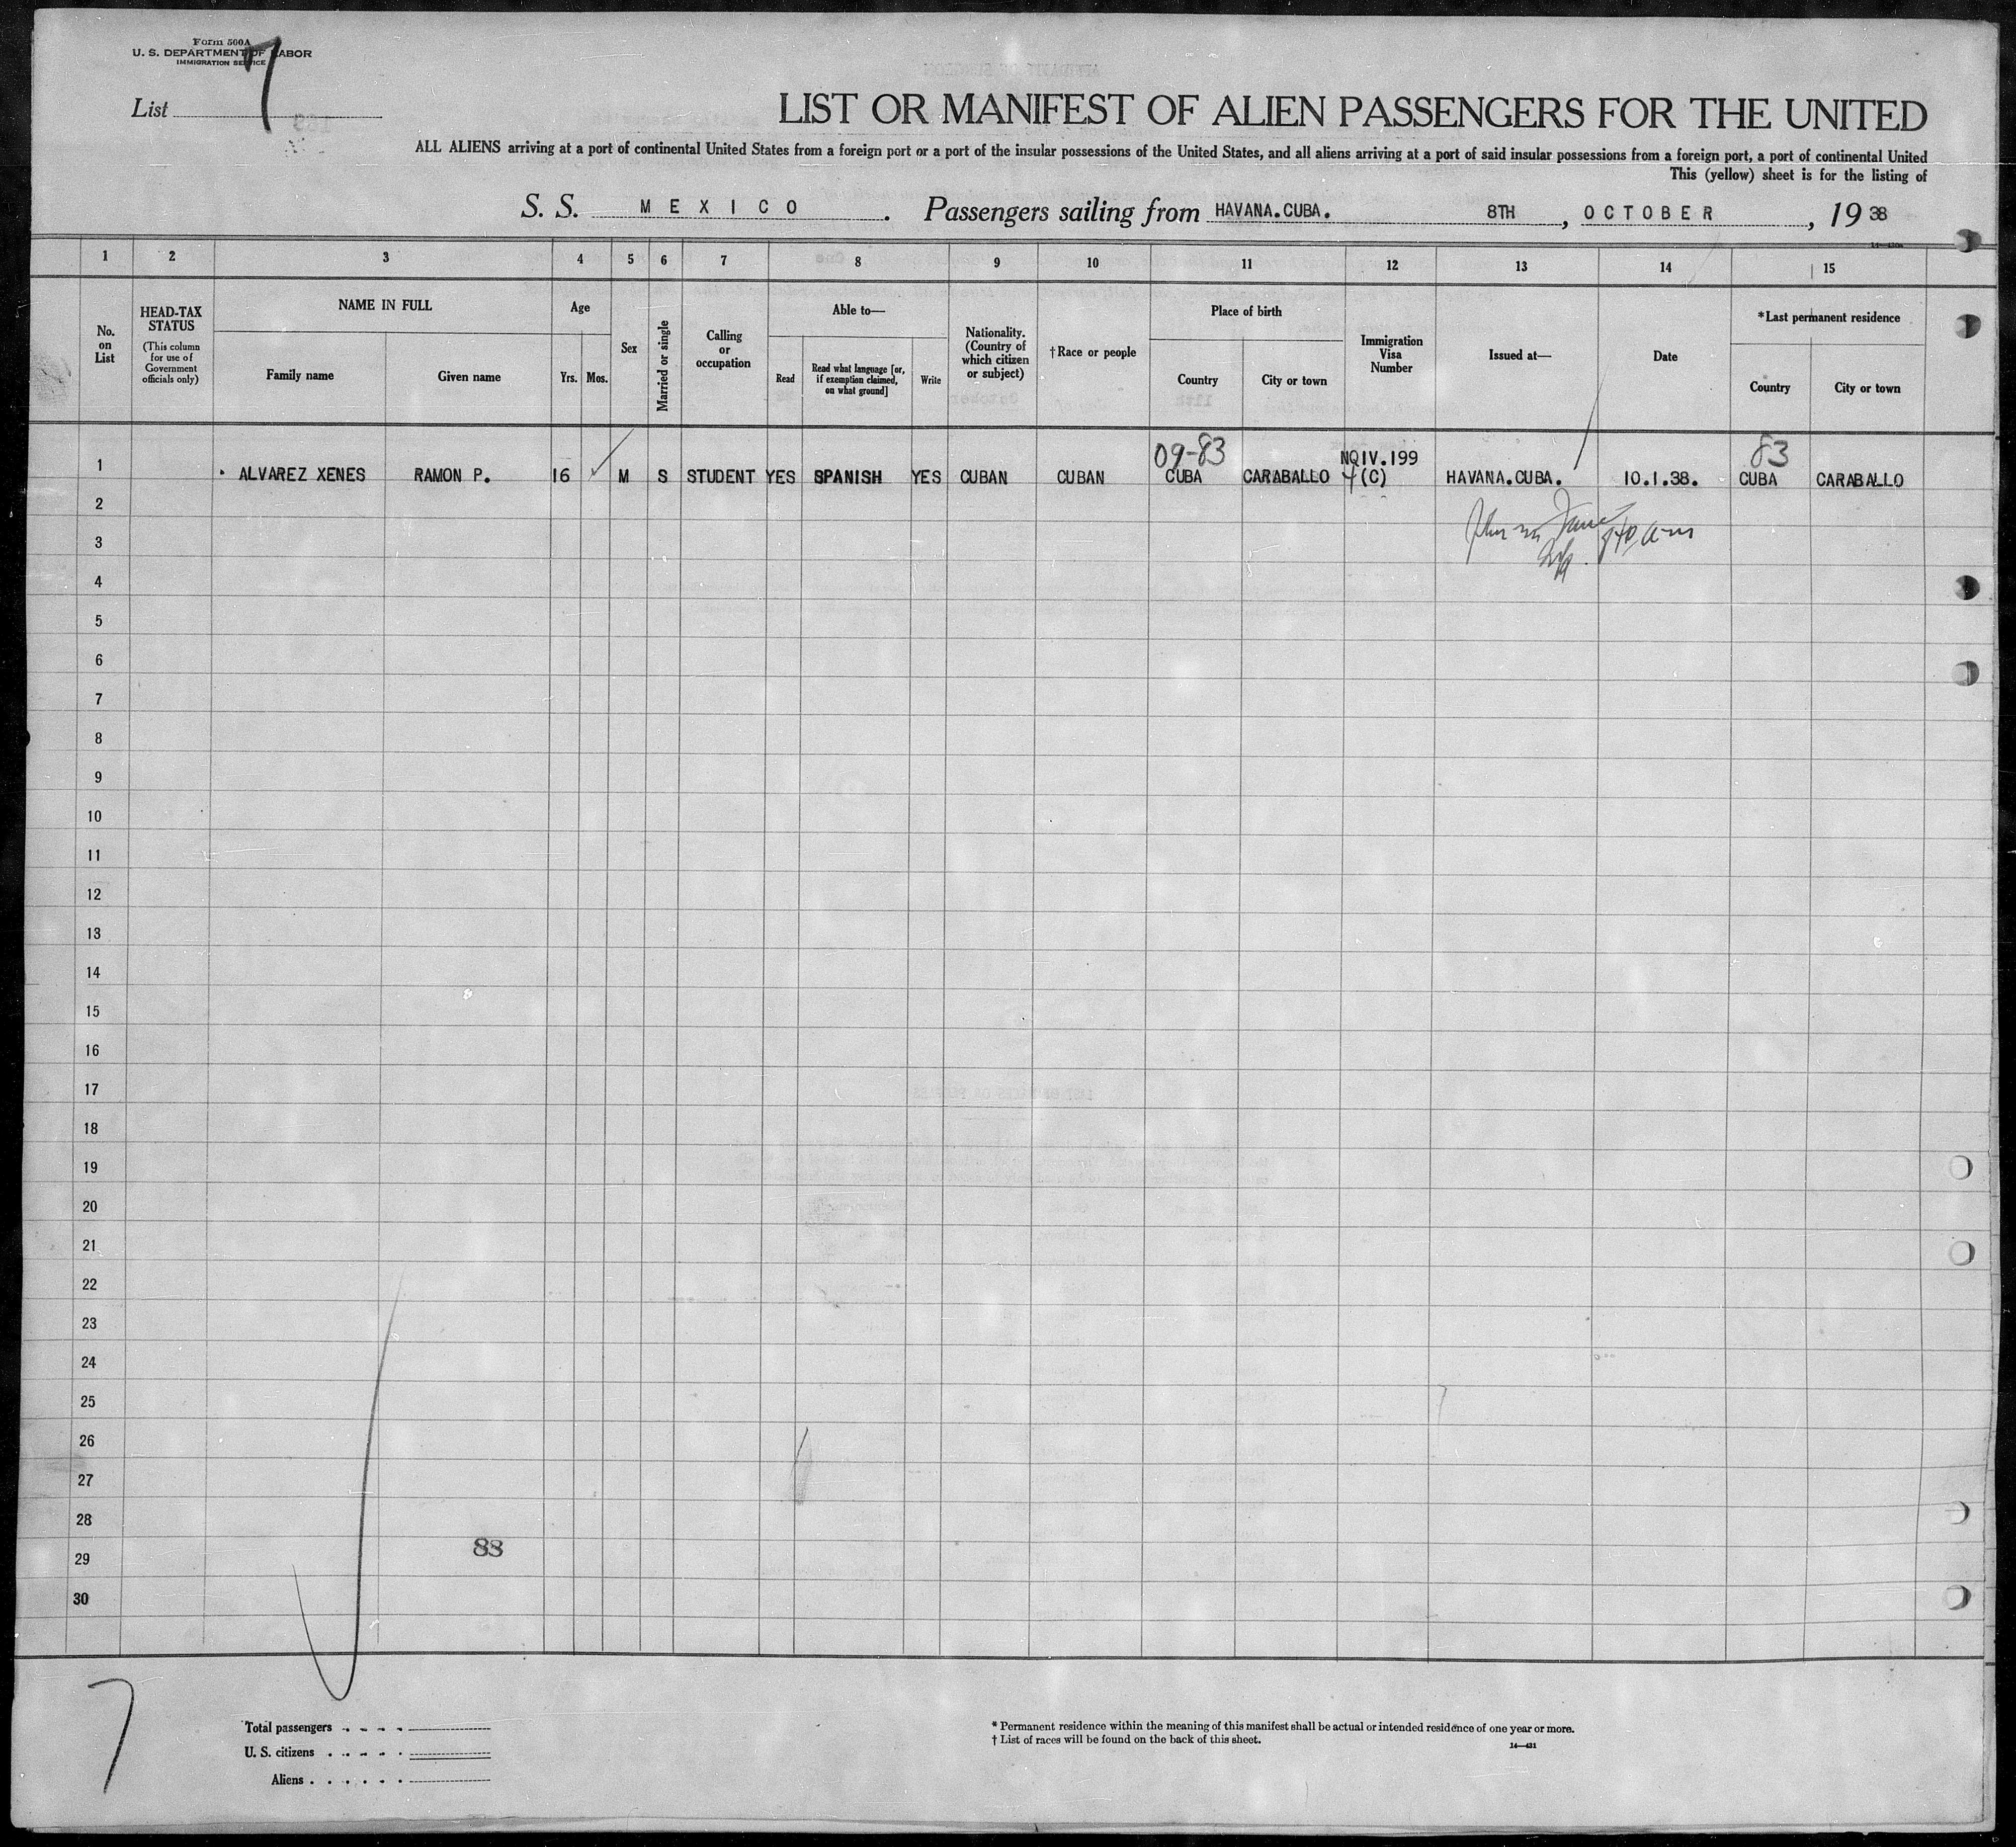 Form 500A
U. S. DEPARTMENT OF LABOR
IMMIGRATION SERVICE
List 7
LIST OR MANIFEST OF ALIEN PASSENGERS FOR THE UNITED
ALL ALIENS arriving at a port of continental United States from a foreign port or a port of the insular possessions of the United States, and all aliens arriving at a port of said insular possessions from a foreign port, a port of continental United
This (yellow) sheet is for the listing of
S. S. MEXICO. Passengers sailing from HAVANA.CUBA. 8TH, OCTOBER, 1938
1 2 3 4 5 6 7 8 9 10 11 12 13 14 15
No. on List
HEAD-TAX STATUS
(This column for use of Government officials only)
NAME IN FULL
Family name Given name
Age
Yrs. Mos.
Sex
Married or single
Calling or occupation
Able to—
Read
Read what language [or, if exemption claimed, on what ground]
Write
Nationality. (Country of which citizen or subject)
†Race or people
Place of birth
Country City or town
Immigration Visa Number
Issued at—
Date
*Last permanent residence
Country City or town
09-83 NQIV.199 83
1 ALVAREZ XENES RAMON P. 16 M S STUDENT YES SPANISH YES CUBAN CUBAN CUBA CARABALLO 4(C) HAVANA.CUBA. 10.1.38. CUBA CARABALLO
2
3
4
5
6
7
8
9
10
11
12
13
14
15
16
17
18
19
20
21
22
23
24
25
26
27
28
29 88
30
7
Total passengers
U. S. citizens
Aliens
* Permanent residence within the meaning of this manifest shall be actual or intended residence of one year or more.
† List of races will be found on the back of this sheet.
14—431